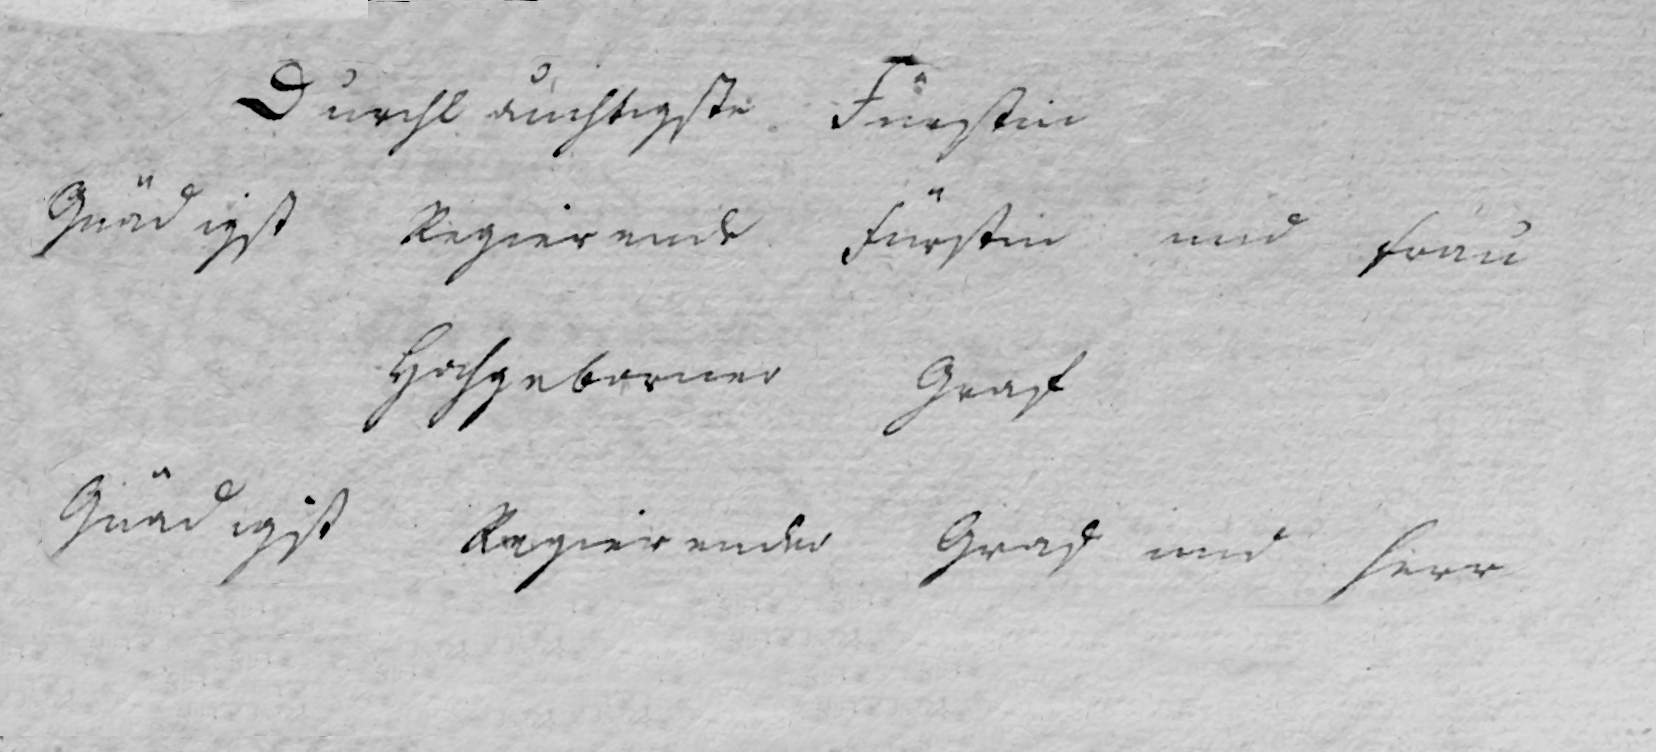 Durchläuchtigste Fürstin
Gnädigst Regierende Fürstin und Frau
Hochgeborner Graf
Gnädigst Regierender Graf und Herr